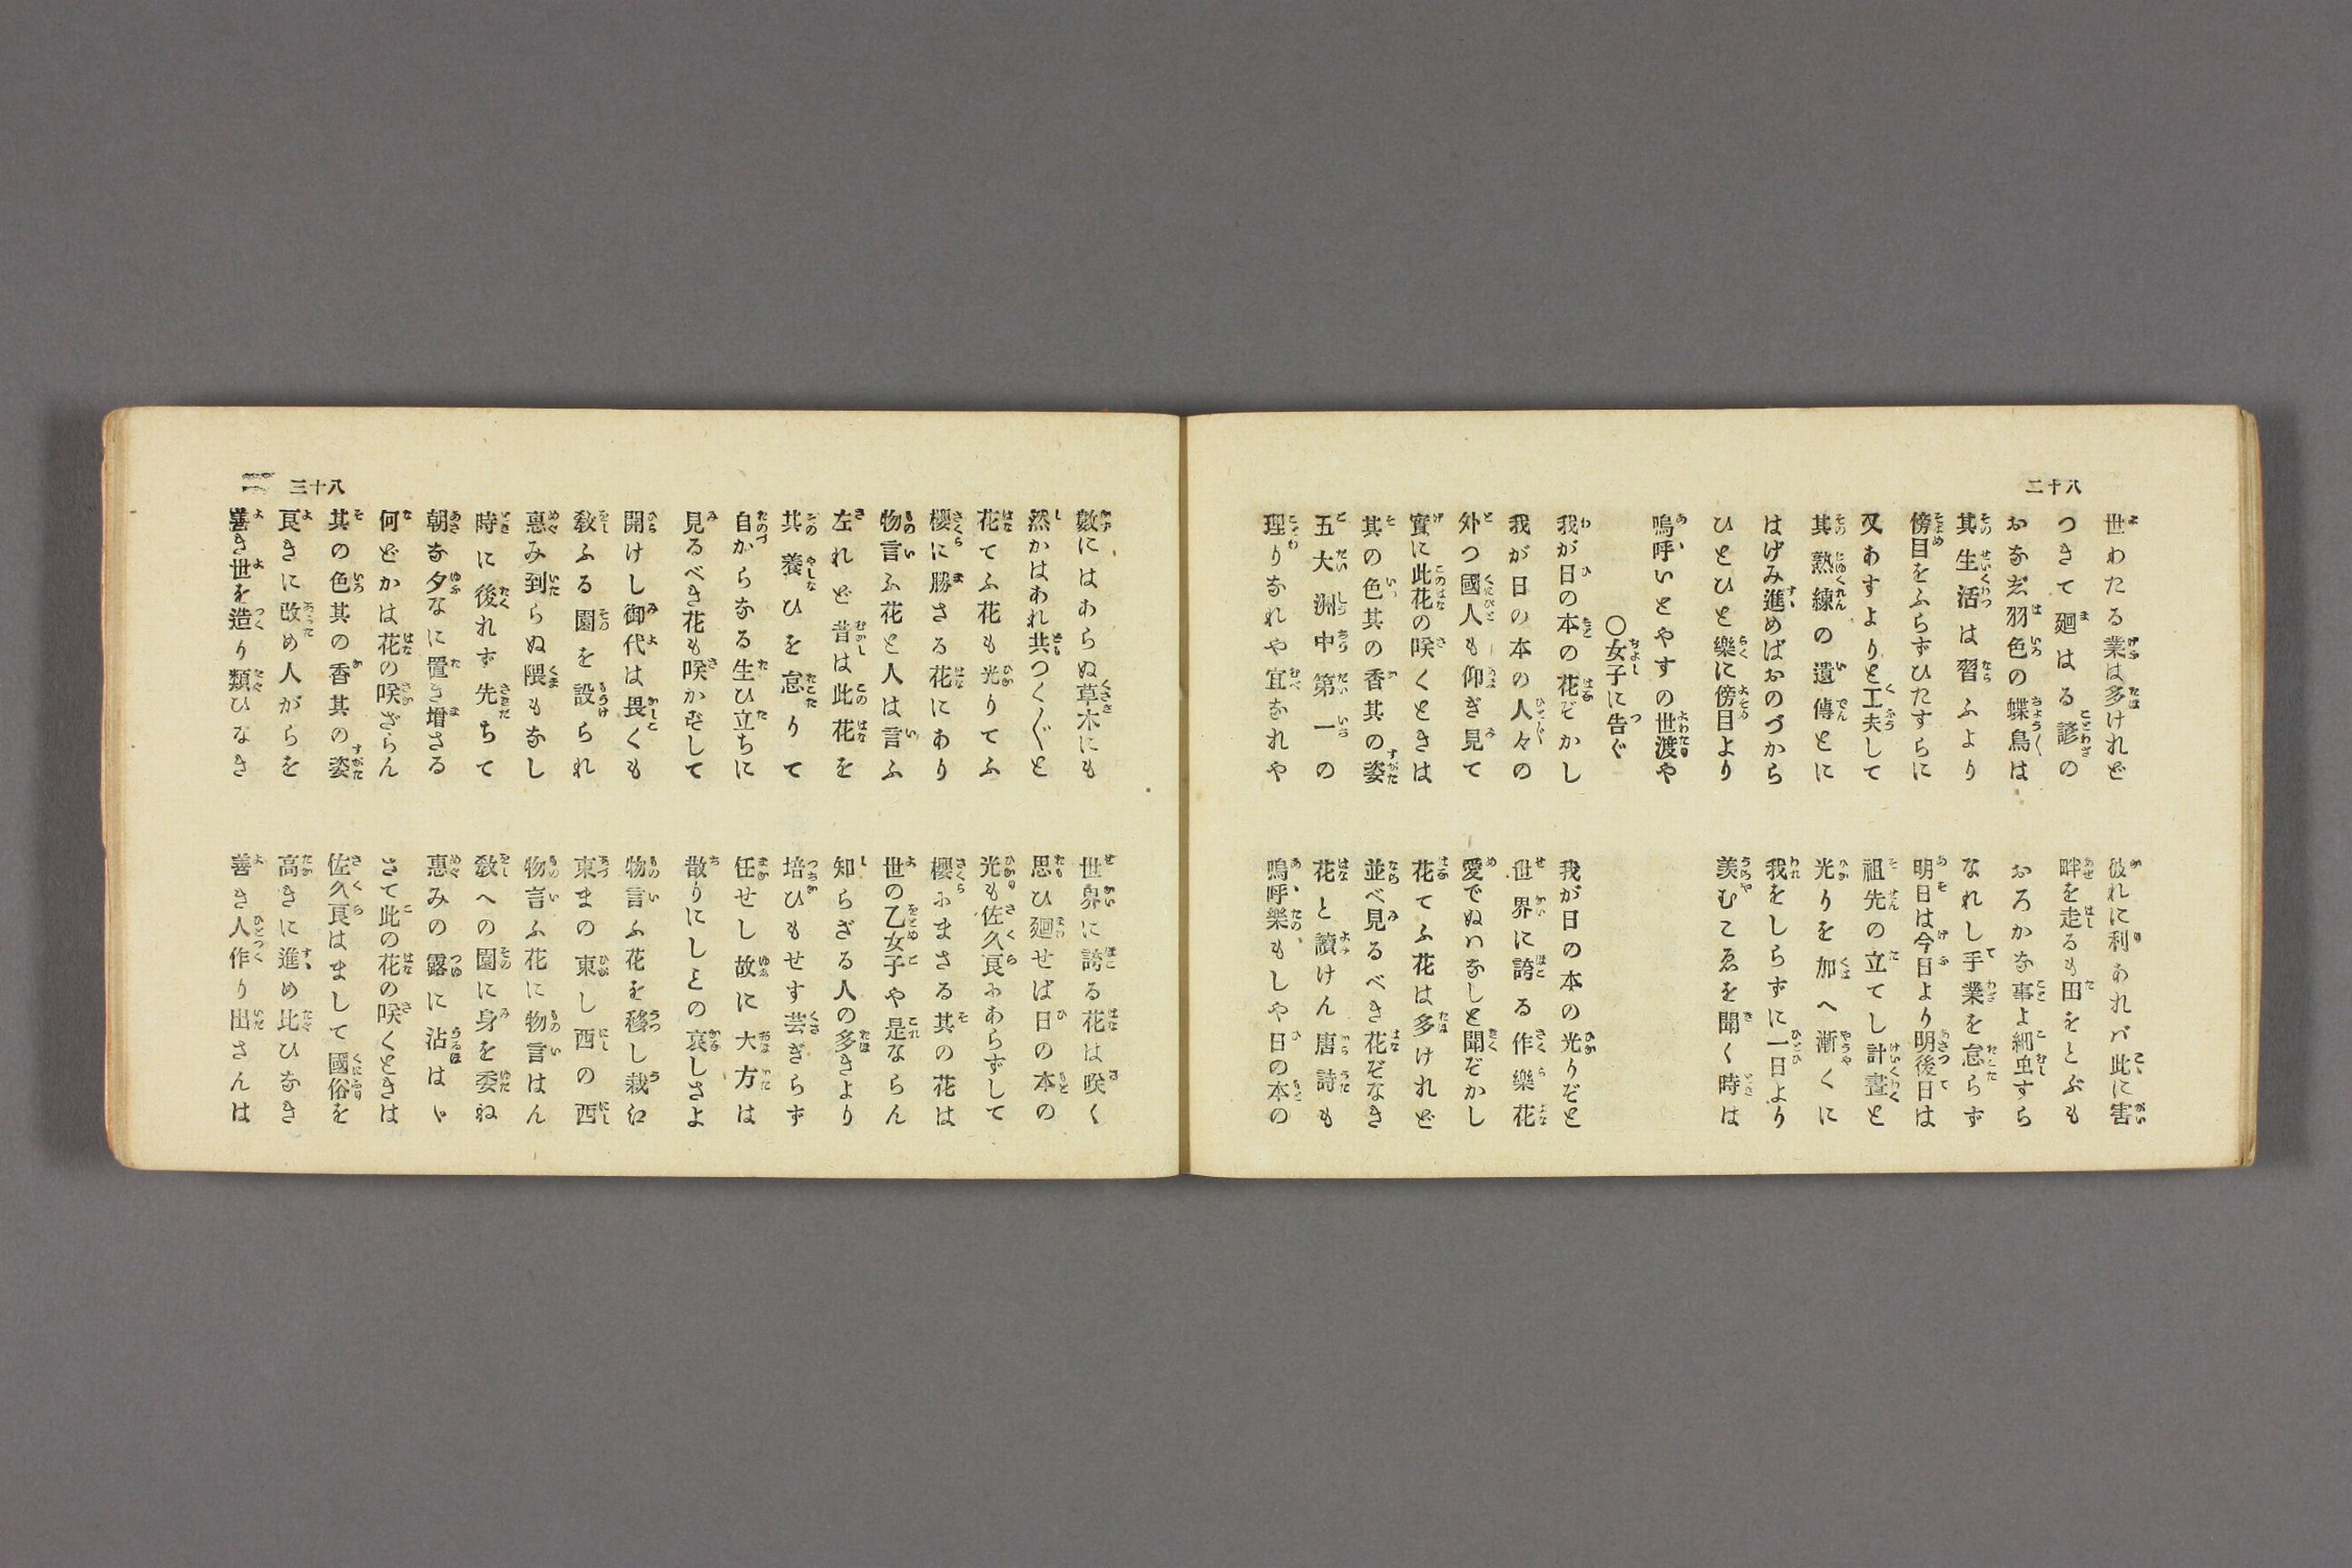 八十二
世わたる業は多けれど
彼れに利あれバ此に害
つきて廻はる諺の
畔を走るも田をとぶも
おなぎ羽色の蝶鳥は
おろかな事よ細虫すら
其生活は習ふより
なれし手業を怠らず
傍目をふらずひたすらに
明日は今日より明後日は
又あすよりと工夫して
祖先の立てし計畫と
其熟練の遺傳とに
光りを加へ漸くに
はげみ進めばおのづから
我をしらずに一日より
ひとひと樂に傍目より
羨むこゑを聞く時は
嗚呼いとやすの世渡や
〇女子に告ぐ
我が日の本の花ぞかし
我が日の本の光りぞと
我が日の本の人々の
世界に誇る作樂花
外つ國人も仰ぎ見て
愛でぬハなしと聞ぞかし
實に此花の咲くときは
花てふ花は多けれど
其の色其の香其の姿
並べ見るべき花ぞなき
五大洲中第一の
花と讀けん唐詩も
理りなれや宜なれや
嗚呼樂もしや日の本の
八十三
數にはあらぬ草木にも
世界に誇る花は咲く
然かはあれ共つく〴〵と
思ひ廻せば日の本の
花てふ花も光りてふ
光も佐久良にあらずして
櫻に勝さる花にあり
櫻にまさる其の花は
物言ふ花と人は言ふ
世の乙女子や是ならん
左れど昔は此花を
知らざる人の多きより
其養ひを怠りて
培ひもせす芸ぎらず
自からなる生ひ立ちに
任せし故に大方は
見るべき花も咲かずして
散りにしとの哀しさよ
開けし御代は畏くも
物言ふ花を移し栽ゑ
敎ふる園を設られ
東まの東し西の西
惠み到らぬ隈もなし
物言ふ花に物言はん
時に後れず先ちて
敎への園に身を委ね
朝な夕なに置き增さる
惠みの露に沾はゝ
何どかは花の咲ざらん
さて此の花の咲くときは
其の色其の香其の姿
佐久良はまして國俗を
良きに改め人がらを
高きに進め比ひなき
善き世を造り類ひなき
善き人作り出さんは